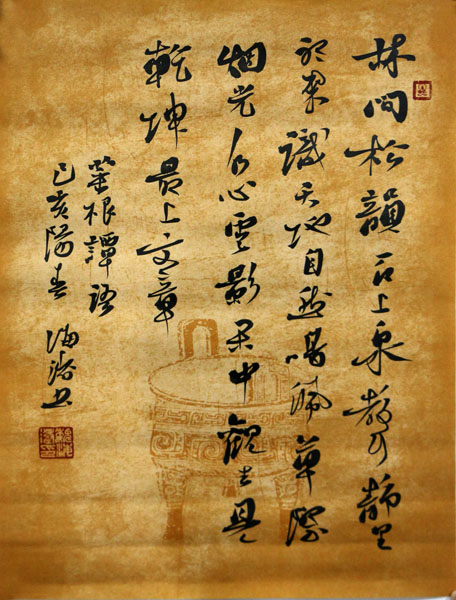 林間松韻石上泉聲靜里
聽來識天地自然鳴佩草際
烟光水心雲影閑中觀去見
乾坤最上文章
菜根譚語
己亥陽春 海书